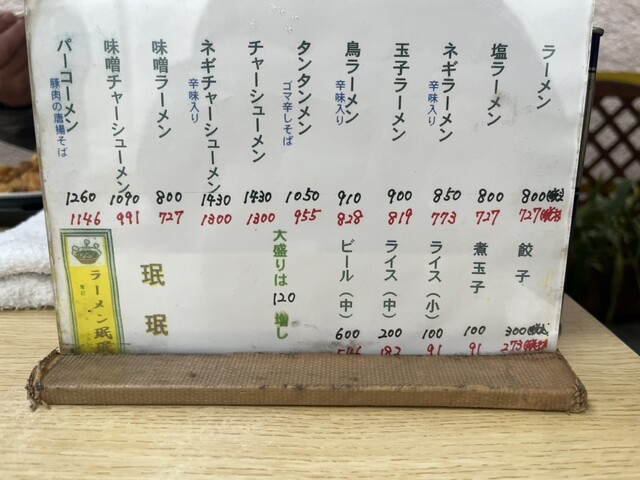 ラーメン 800(税込) 727(税抜)
塩ラーメン 800 727
ネギラーメン 辛味入り 850 773
玉子ラーメン 900 819
鳥ラーメン 辛味入り 910 828
タンタンメン ゴマ辛しそば 1050 955
チャーシューメン 1430 1300
ネギチャーシューメン 辛味入り 1430 1300
味噌ラーメン 800 727
味噌チャーシューメン 1090 991
パーコーメン 豚肉の唐揚そば 1260 1146
餃子 300(税込) 273(税抜)
煮玉子 100 91
ライス(小) 100 91
ライス(中) 200 182
ビール(中) 600 546
大盛りは120増し
珉珉
ラーメン 珉珉